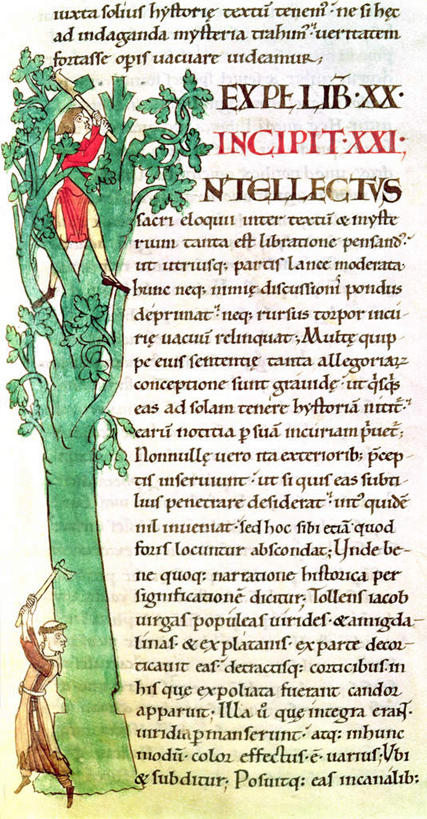 iuxta solius hystorię textū tenem᷑· ne si hęc
ad indaganda mysteria trahim᷑· veritatem
fortasse opis vacuare videamur;
EXPɫ LIB·XX·
INCIPIT·XXI·
NTELLECTVS
sacri eloquii inter textū & myste
rium tanta est libratione pensand᷑·
ut utriusq; partis lance moderata
hunc neq; nimię discussionı᷑ pondus
deprimat᷑· neq; rursus torpor incu
rię vacuū relinquat; Multę quip
pe eius sententię tanta allegoriaꝝ
conceptione sunt gravidę· ut q̇sq̇s
eas ad solam tenere hystoriā nitit᷑·
earū notitia ꝑ suā incuriam p̄uet᷑;
Nonnullę vero ita exteriorib; p̄cep
tis inserviunt· ut si quis eas subti
lius penetrare desiderat᷑· int᷑ quidē
nil inveniat· sed hoc sibi etiā quod
foris locuntur abscondat; Unde be
ne quoq; narratione historica per
significationē dicitur; Tollens iacob
virgas populeas virides· & amigda
linas· & ex platanis· ex parte decor
ticavit eas· detractisq; corticibus in
his que expoliata fuerant candor
apparuit; Illa ů que integra erant·
viridia ꝑmanserunt· atq; in hunc
modū· color effectus·ē· varius; Ubi
& subditur; Posuitq; eas in canalib;